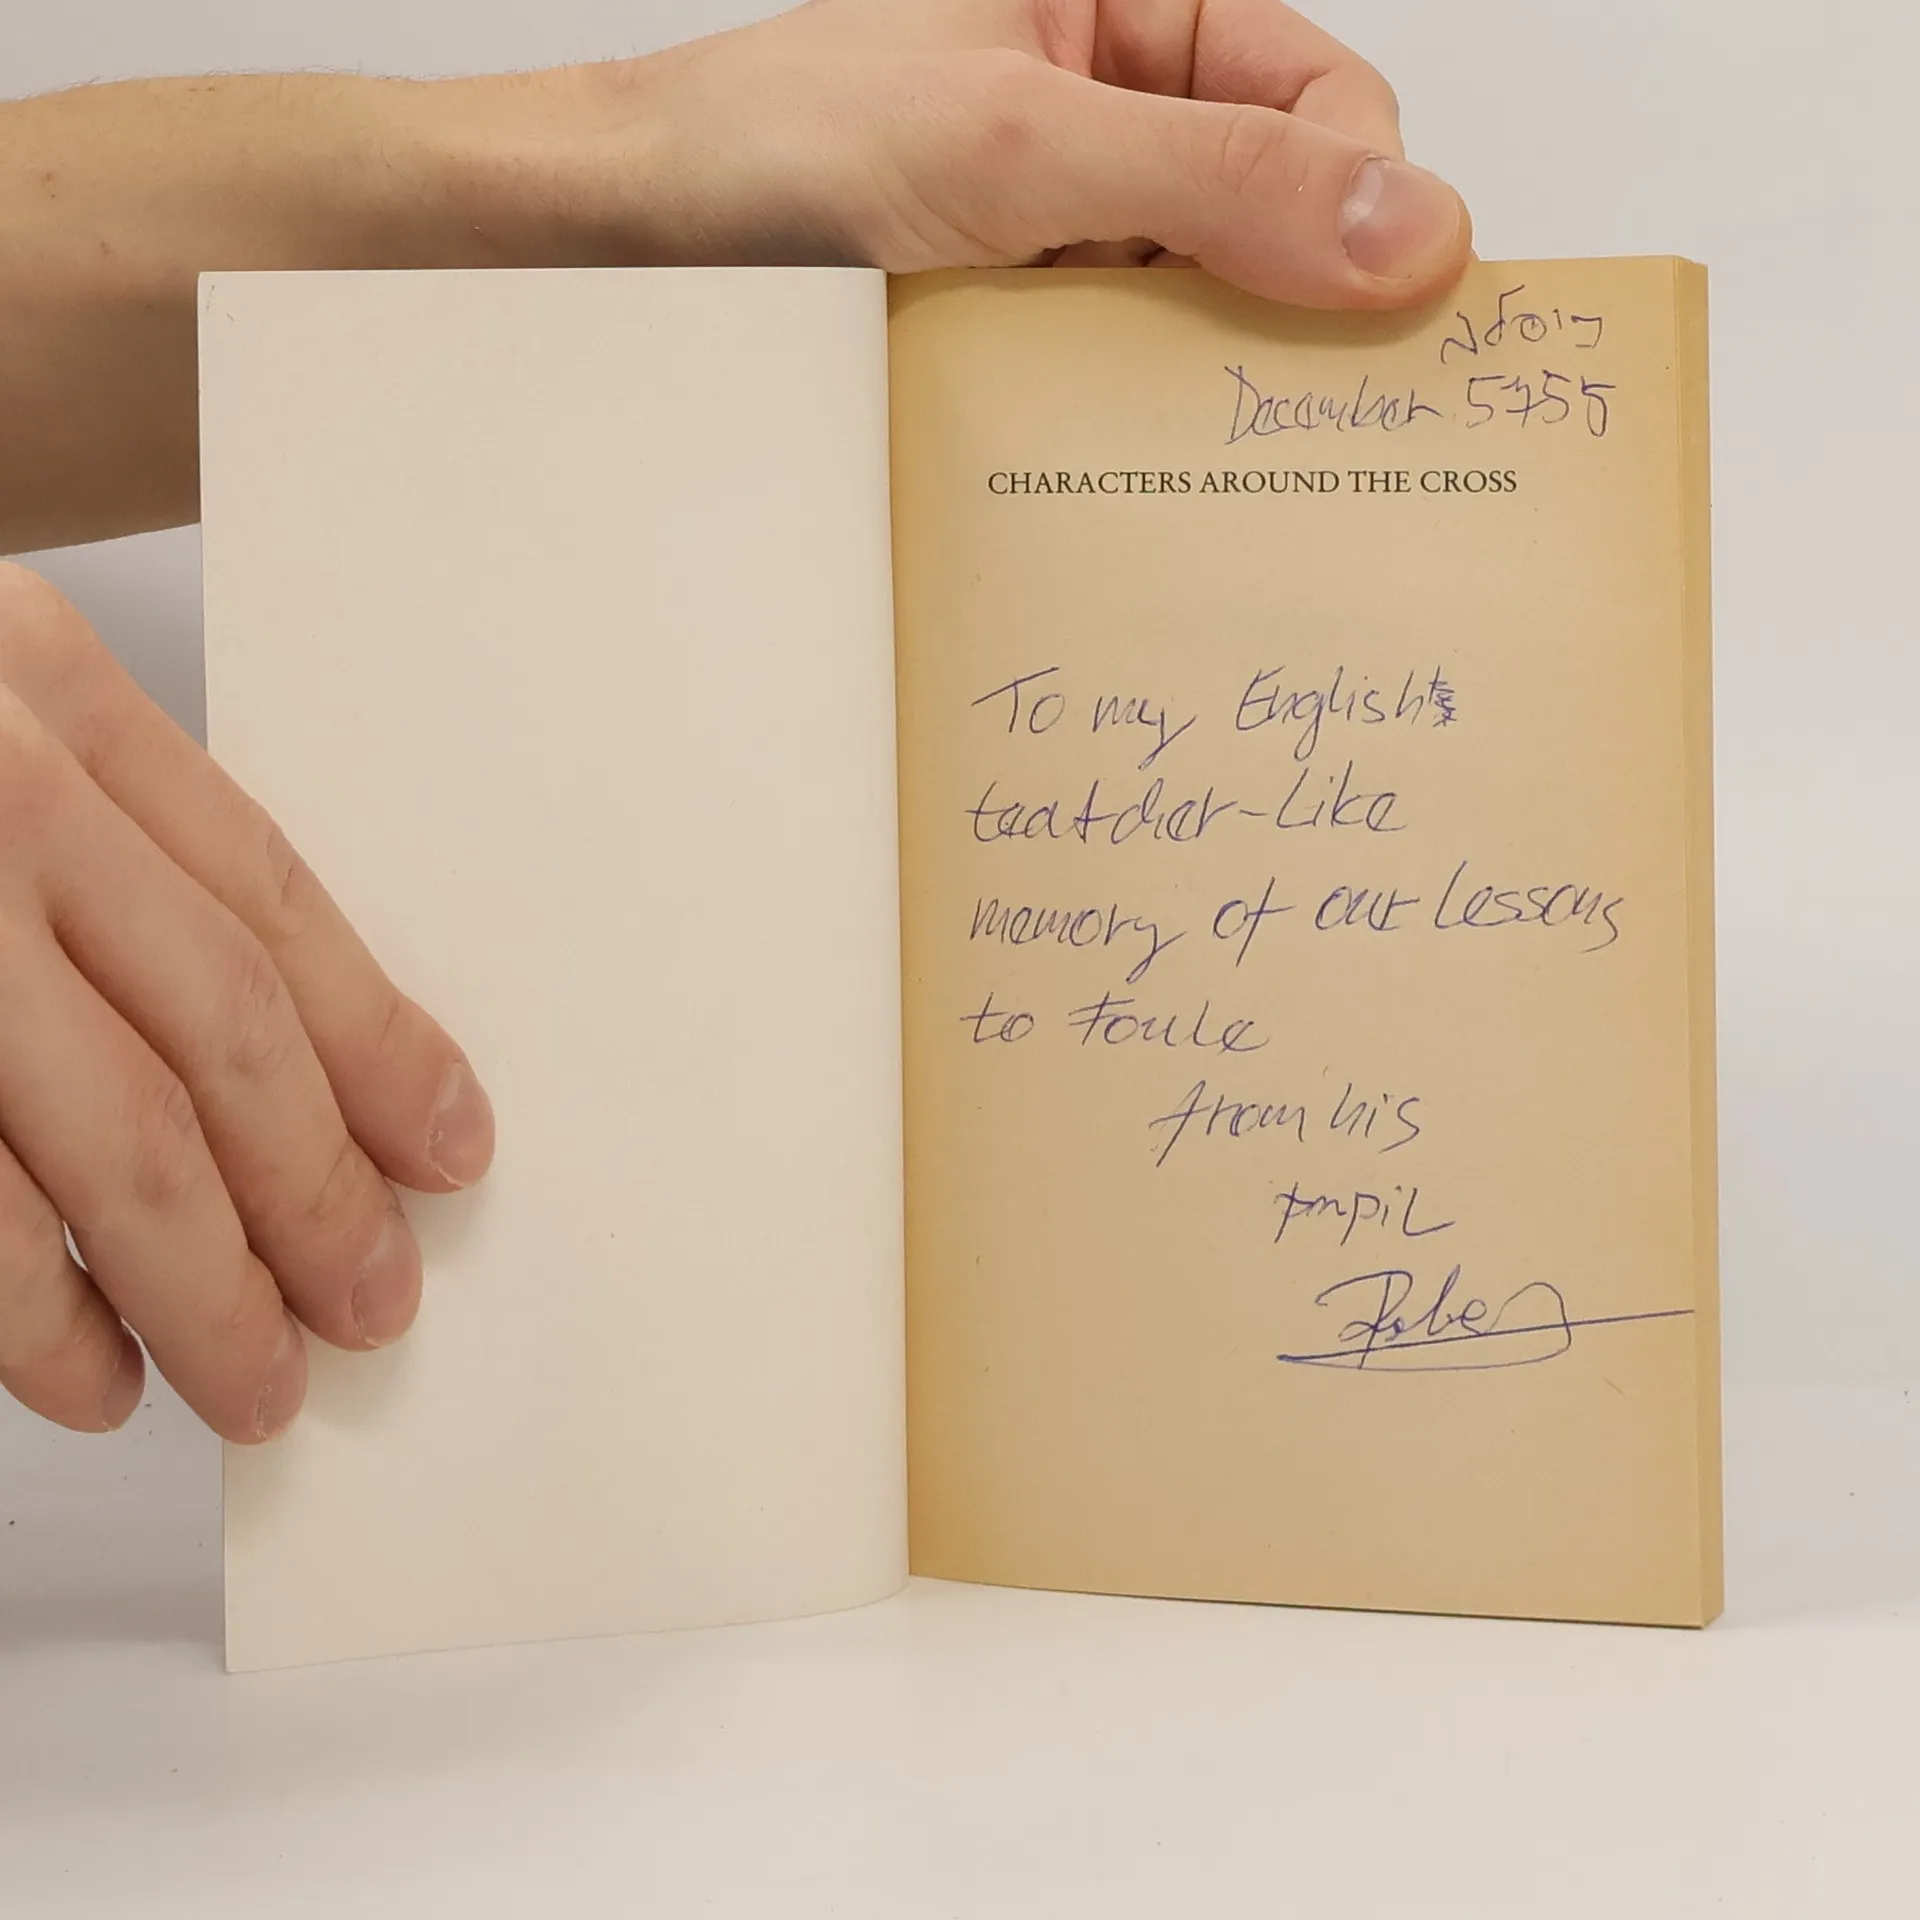 December 5755
CHARACTERS AROUND THE CROSS
To my English
teatcher-Like
memory of our Lessons
to Foule
from his
pupil